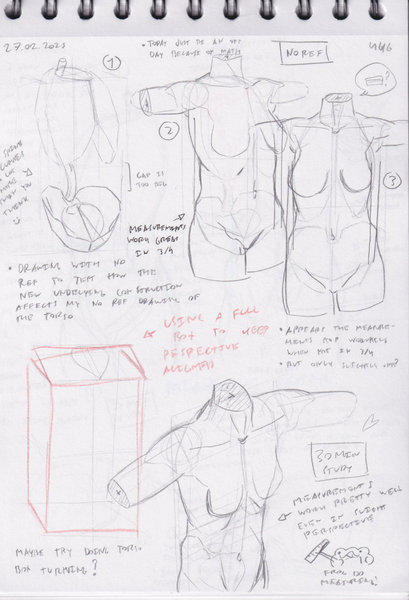 27.02.2023
• TODAY JUST BE AN OFF
DAY BECAUSE OF MATH
NO REF
446
1
2
3
GAP IS
TOO BIG
THAN YOU
THINK
MEASUREMENTS
WORK GREAT
IN 3/4
• DRAWING WITH NO
REF TO TEST HOW THE
NEW UNDERLYING CONSTRUCTION
AFFECTS MY NO REF DRAWING OF
THE TORSO
USING A FULL
BOX TO KEEP
PERSPECTIVE
ALIGNED
• APPEARS THE MEASURE-
MENTS
WHEN NOT IN 3/4
• BUT ONLY SLIGHTLY OFF?
30 MIN
STUDY
MEASUREMENTS
WORK PRETTY WELL
EVEN IN SLIGHT
PERSPECTIVE
MAYBE TRY DOING TORSO
BOX TURNING?
FROG DO
MEASURING!